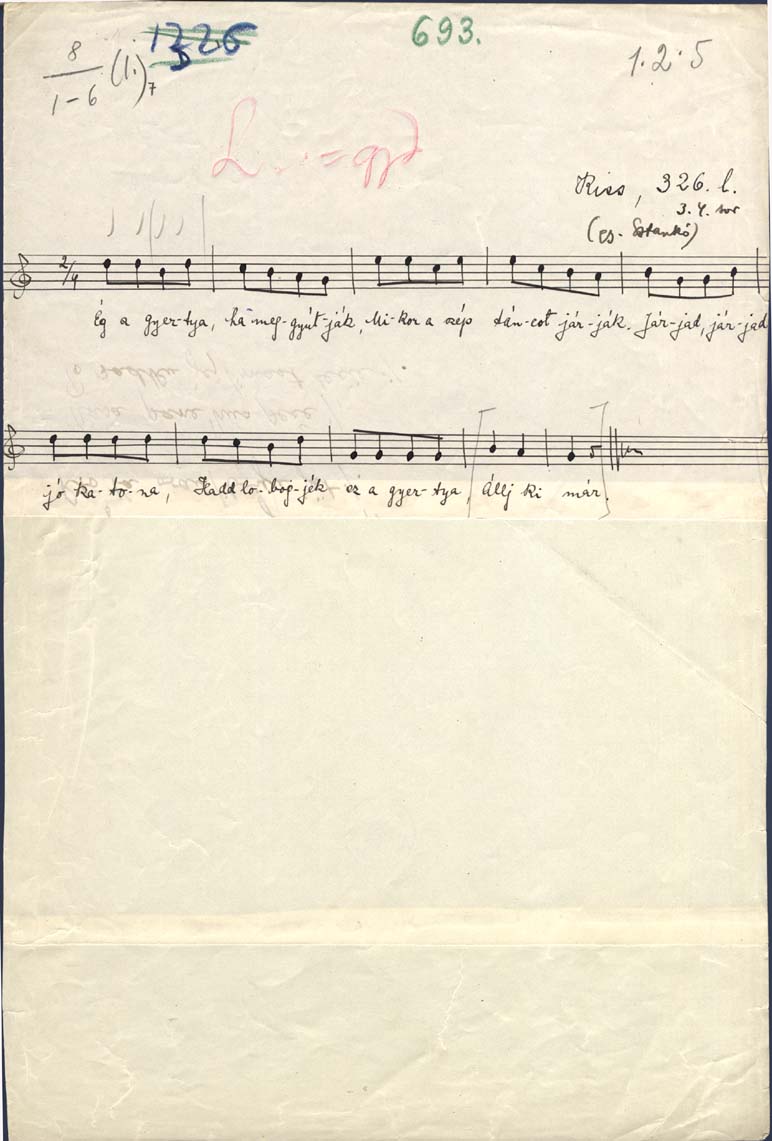 693.
1226
8
1-6 (1.)7
1·2·5
Kiss, 326. l.
3. 4. sor
(és. Sztankó)
2/4
Ég a gyer-tya, ha meg-gyút-ják, Mi-kor a szép tán-cot jár-ják. Jár-jad, jár-jad
jó ka-to-na, Hadd lo-bog-jék ez a gyer-tya, Állj ki már.